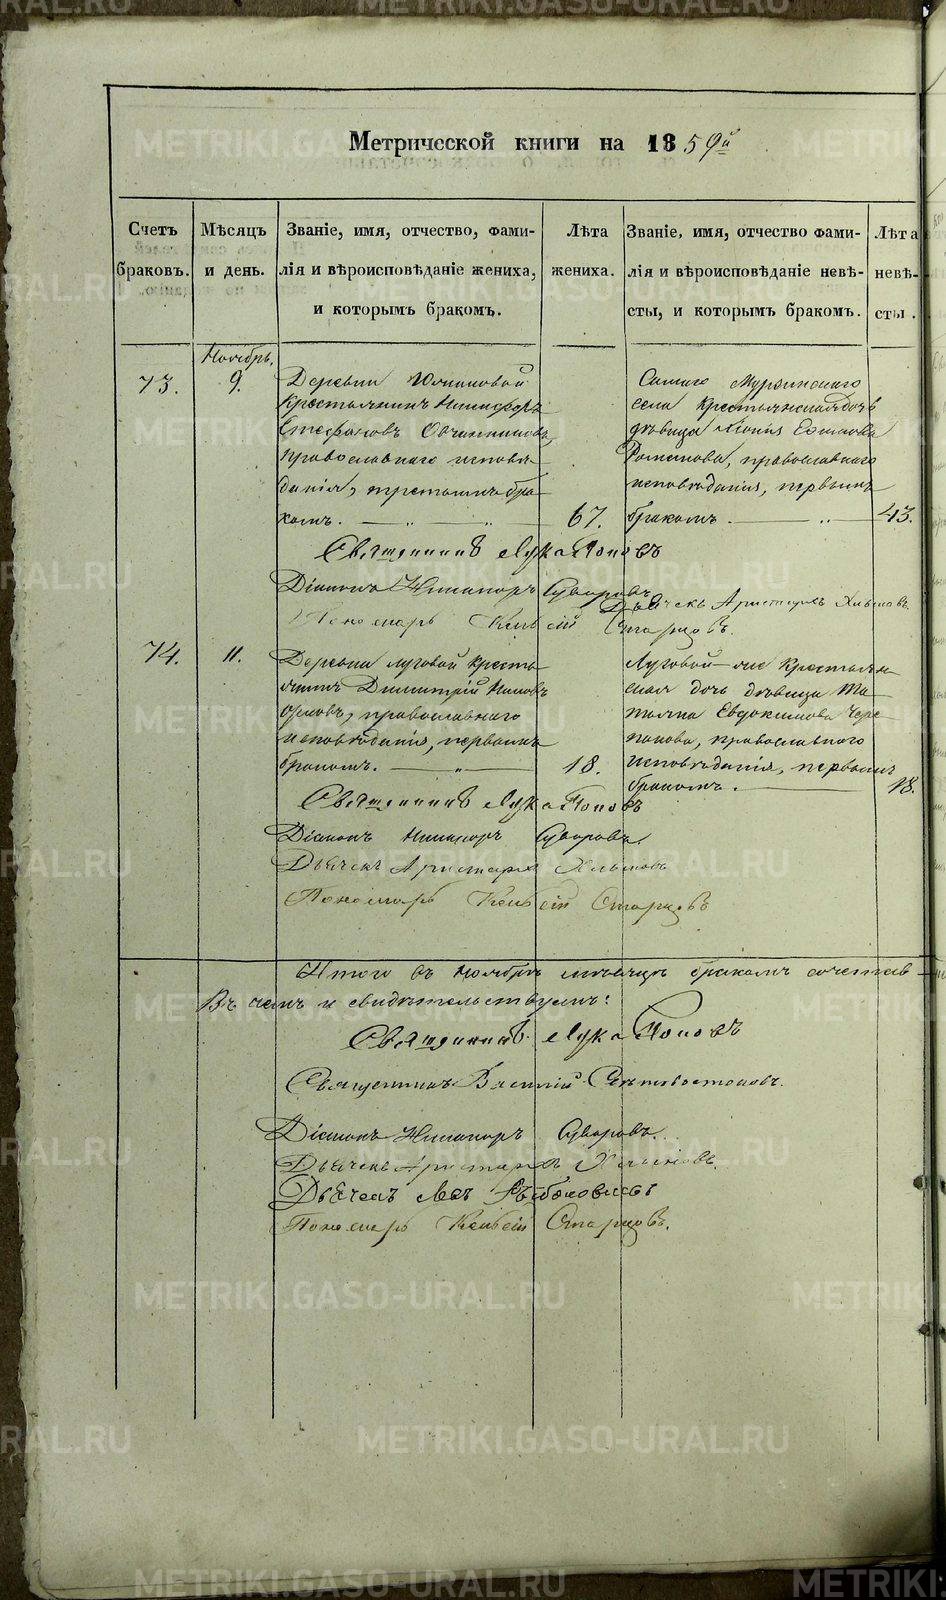 Метрической книги на 1859й
Счетъ браковъ.
Мѣсяцъ и день.
Званіе, имя, отчество, фами-
лія и вѣроисповѣданіе жениха,
и которымъ бракомъ.
Лѣта
жениха.
Званіе, имя, отчество фами-
лія и вѣроисповѣданіе невѣ-
сты, и которымъ бракомъ.
Лѣта
невѣ-
сты.
Ноябрь.
73.
9.
Деревни
Крестьянинъ Никифоръ
Стефановъ Овчинниковъ,
православнаго исповѣ-
данія, третьимъ бра-
комъ.
67.
Самаго Мурзинскаго
села крестьянская дочь
дѣвица Ксенія Ефимова
Романова, православнаго
исповѣданія, первымъ
бракомъ.
43.
Священникъ Лука Поповъ
Діаконъ Никаноръ Суворовъ.
Дьячекъ Аристархъ Хлыновъ.
Пономарь Старцовъ.
74.
11.
Деревни Луговой кресть-
янинъ Димитрій
Орловъ, православнаго
исповѣданія, первымъ
бракомъ.
18.
Луговой-же крестьян-
ская дочь дѣвица Та-
тьяна Евдокимова Чере-
панова, православнаго
исповѣданія, первымъ
бракомъ.
18.
Священникъ Лука Поповъ
Діаконъ Никаноръ Суворовъ.
Дьячекъ Аристархъ Хлыновъ
Пономарь Старцовъ
Итого въ ноябрѣ мѣсяцѣ бракомъ сочетав
Въ чемъ и свидѣтельствуемъ:
Священникъ Лука Поповъ
Священникъ Василій
Діаконъ Никаноръ Суворовъ.
Дьячекъ Аристархъ Хлыновъ.
Дьячекъ
Пономарь Старцовъ.
METRIKI.GASO-URAL.RU